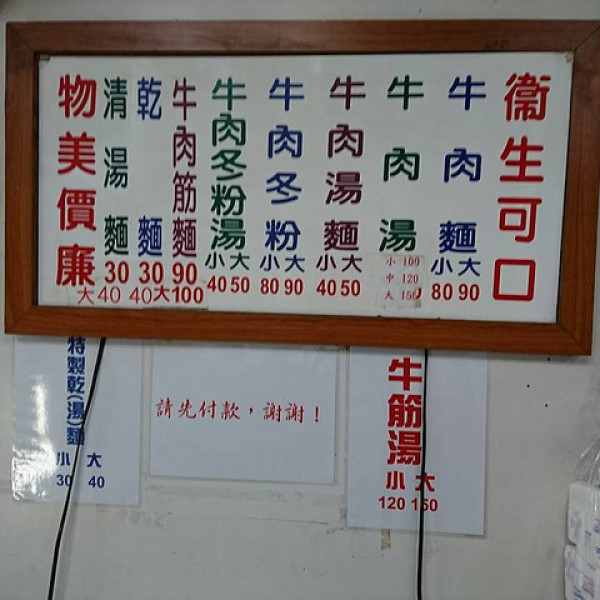 衞生可口
牛肉麵
小大
80 90
牛肉湯
小 100
中 120
大 150
牛肉湯麵
小大
40 50
牛肉冬粉
小大
80 90
牛肉冬粉湯
小大
40 50
牛肉筋麵
90
大100
乾麵
30
40
清湯麵
30
大40
物美價廉
牛筋湯
小 大
120 150
請先付款，謝謝！
特製乾(湯)麵
小 大
30 40